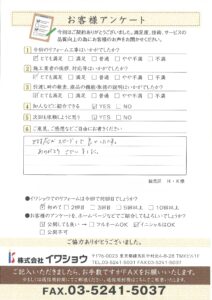 お客様アンケート
今回はご契約ありがとうございました。満足度、技術、サービスの
品質向上の為にお客様のお声をお聞かせください。
1 今回のリフォーム工事はいかがでしたか?
☑とても満足 □満足 □普通 □やや不満 □不満
2 施工業者の態度、対応等はいかがでしたか?
☑とても満足 □満足 □普通 □やや不満 □不満
3 引渡し時の検査、商品の機能・取扱の説明はいかがでしたか?
☑とても満足 □満足 □普通 □やや不満 □不満
4 知人などに紹介できる ☑YES □NO
5 次回も依頼しようと思う ☑YES □NO
6 ご意見、ご感想などご自由にお書きください
ありがとう
●イワショウでのリフォームは今回で何回目でしょうか?
□2回目 □3回目 □5回以上 □10回以上
●お客様のアンケートを、ホームページなどでご紹介してもよろしいでしょうか?
□公開してもよい □フルネームOK ☑イニシャルはOK
□公開不可
ご協力ありがとうございました。
株式会社イワショウ
〒176-0023 東京都練馬区中村北4-8-26 TMKビル1F
TEL.03-5241-5031 FAX.03-5241-5037
ご記入いただきましたら、お手数ですがFAXをお願いいたします。
FAX.03-5241-5037